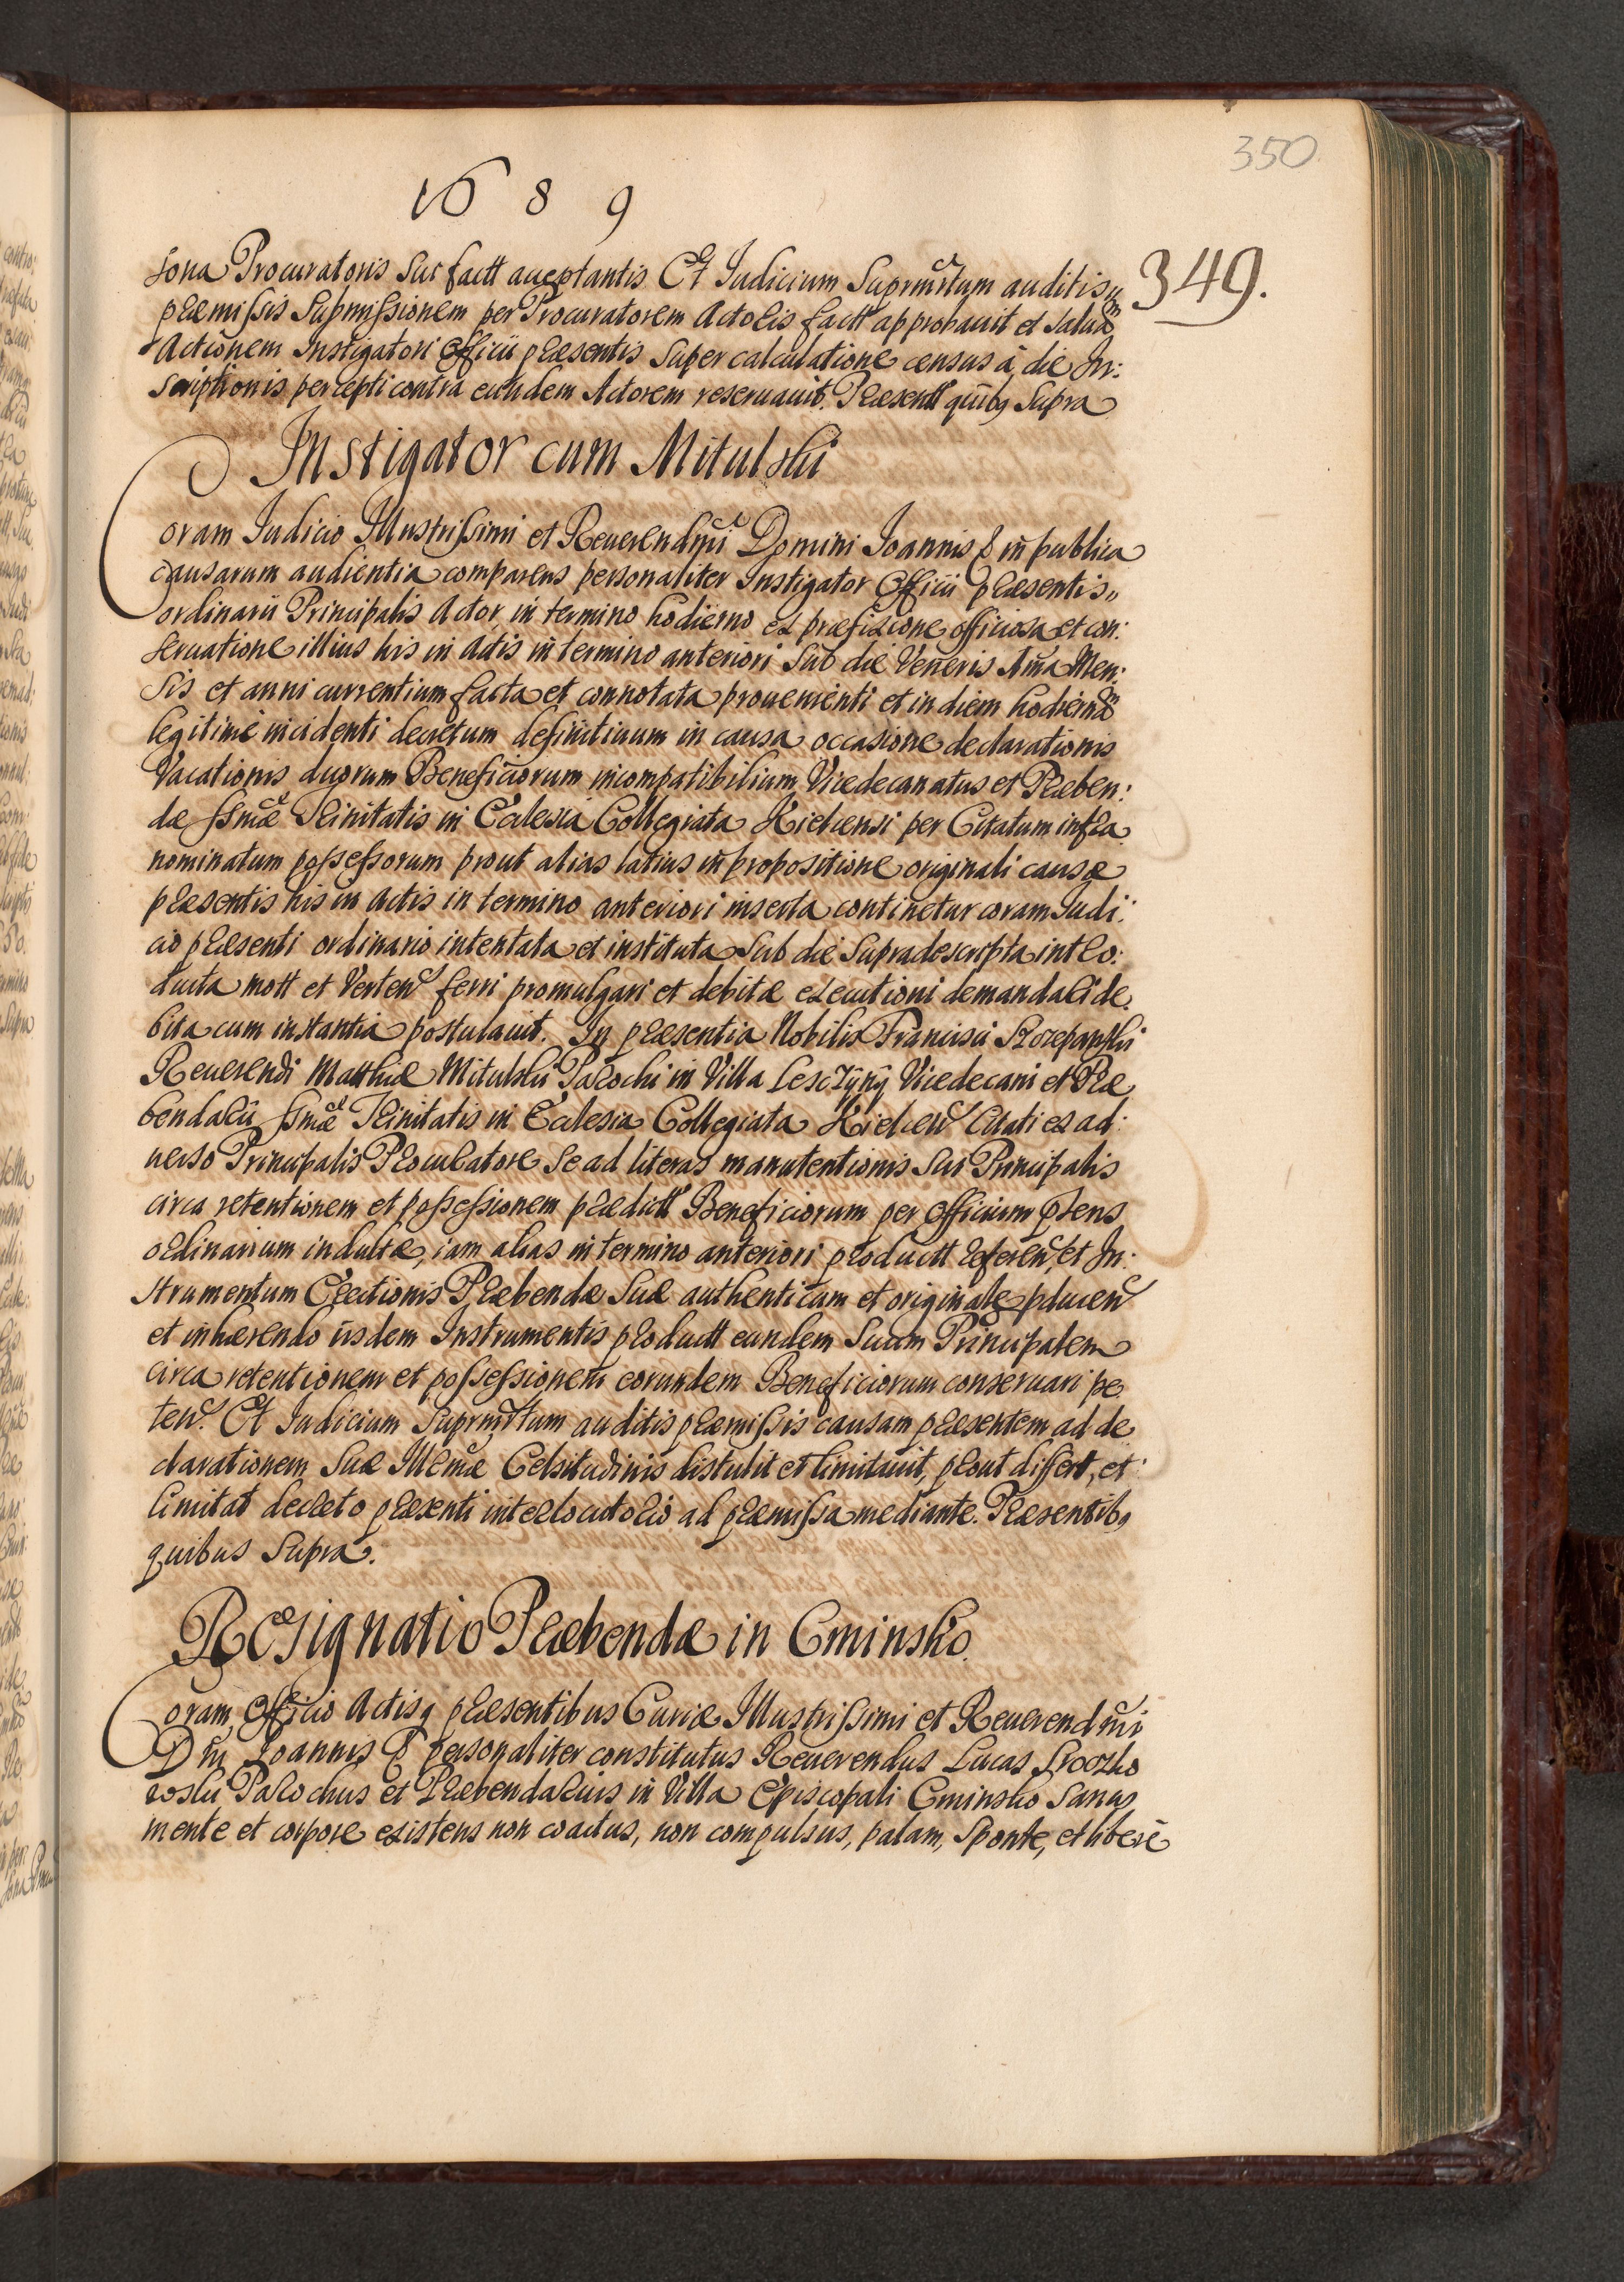 350
1 6 8 9
349.
sona Procuratoris Sui factt acceptantis Et Iudicium Suprmrtum auditis
præmissis Submissionem per Procuratorem Actoris factt approbauit et Saluam
Actionem Instigatori Officii præsentis Super calculatione census à die In:
scriptionis percepti contra eundem Actorem reseruauit. Præsentt quibq Supra
Instigator cum Mitulski
Coram Iudicio Illustrissimi et Reuerendmi Domini Ioannis & in publica
causarum audientia comparens personaliter Instigator Officii præsentis
ordinarii Principalis Actor, in termino hodierno ex præfixione officiosa et con:
seruatione illius his in Actis in termino anteriori Sub die Veneris Men:
sis et anni currentium facta et connotata prouenienti et in diem hodiernam
legitimè incidenti decretum definitiuum in causa occasione declarationis
Vacationis duorum Beneficiorum incompatibilium Vicedecanatus et Præben:
dæ SSmæ Trinitatis in Ecclesia Collegiata Kielcensi per Citatum infra
nominatum possessorum prout alias latius in propositione originali causæ
præsentis his in Actis in termino anteriori inserta continetur coram Iudi:
cio præsenti ordinario intentata et instituta Sub die Supradescripta intro:
ducta mott et Verten ferri promulgari et debitæ executioni demandari de
bita cum instantia postulauit. In præsentia Nobilis Francisci Szczepanski
Reuerendi Matthiæ Mitulski Parochi in Villa Lesczÿnÿ Vicedecani et Præ
bendarii SSmæ Trinitatis in Ecclesia Collegiata Kielcen Citati ex ad:
uerso Principalis Procuratore Se ad literas manutentionis Sui Principalis
circa retentionem et possessionem prædictt Beneficiorum per Officium pſens
ordinarium indultæ, iam alias in termino anteriori productt referen, et In:
strumentum Erectionis Præbendæ Suæ authenticum et originale pducen
et inhærendo iisdem Instrumentis productt eundem Suum Principalem
circa retentionem et possessionem eorundem Beneficiorum conseruari pe
ten. Et Iudicium Suprmrtum auditis præmissis causam præsentem ad de
clarationem Suæ Illrmæ Celsitudinis distulit et limitauit, prout differt, et
limitat decreto præsenti interlocutorio ad præmissa mediante. Præsentibq
quibus Supra.
Resignatio Præbendæ in Cminsko.
Coram Officio Actisq præsentibus Curiæ Illustrissimi et Reuerendmi
Dni Ioannis & personaliter constitutus Reuerendus Lucas
Parochus et Præbendarius in Villa Episcopali Cminsko Sanus
mente et corpore existens non coactus, non compulsus, palam, Sponte, et liberè